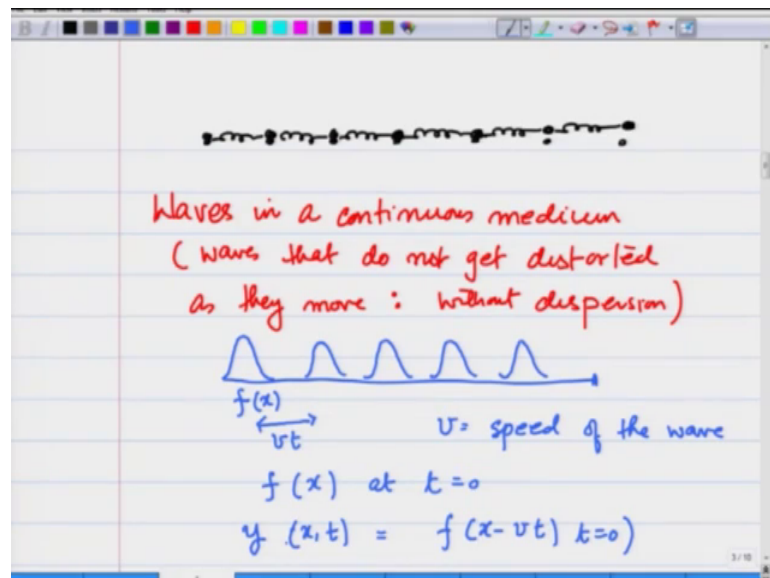 Waves in a continuous medium
(waves that do not get distorted
as they move : without dispersion)
f(x)
vt
v = speed of the wave
f(x) at t=0
y(x,t) = f(x-vt) t=0)
3/10